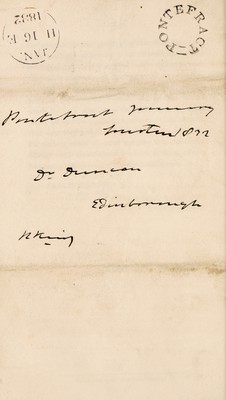 PONTEFRACT
JAN
16
1832
Pontefract January
fourteen 1832
Dr Duncan
Edinborough